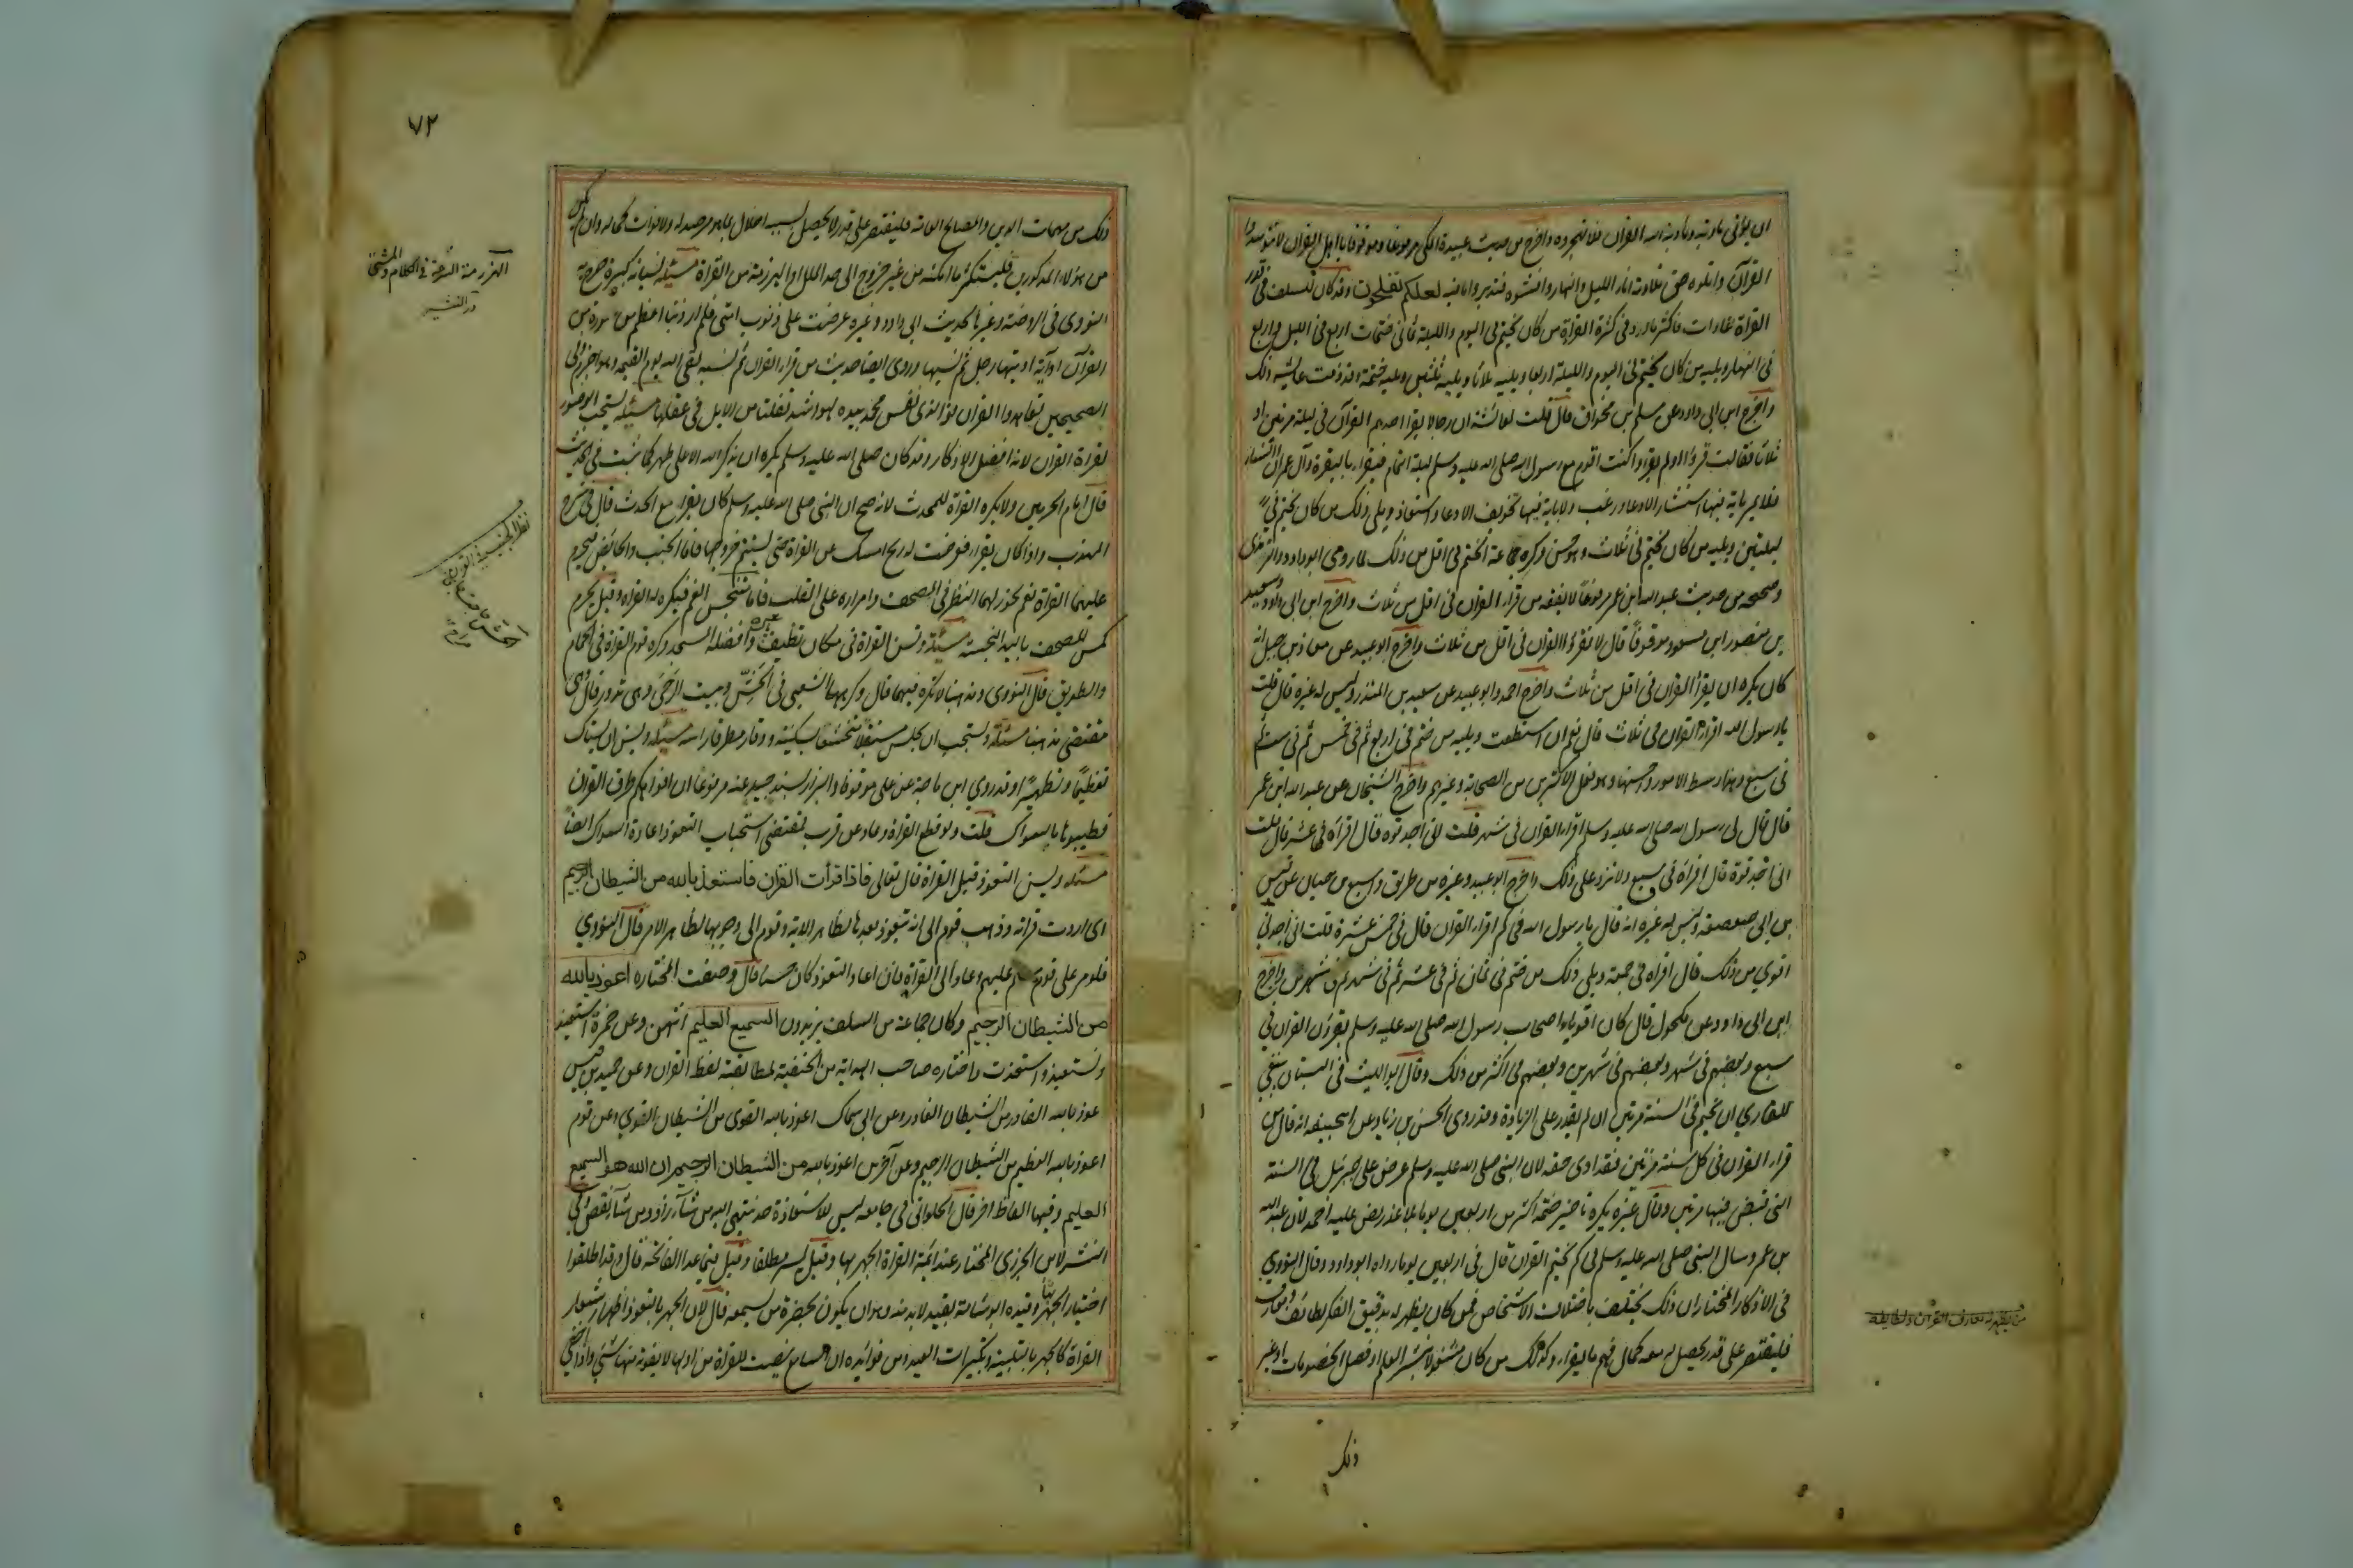 ان يؤتى مادبته ومادبة الله القران فلا تهجروه واخرج من حديث عبيدة المكي مرفوعا وموقوفا يا اهل القران لا توسدوا
القرآن واتلوه حق تلاوته اناء الليل والنهار وافشوه وتدبروا ما فيه لعلكم تفلحون وقد كان للسلف في قدر
القراة عادات فاكثر ما ورد في كثرة القراة من كان يختم في اليوم والليلة ثماني ختمات اربع في الليل واربع
في النهار ويليه من كان يختم في اليوم والليلة اربعا ويليه ثلاثا ويليه ختمتين ويليه ختمة وقد ذمت عايشة ذلك
واخرج ابن ابي داود عن مسلم بن مخراق قال قلت لعائشة ان رجالا يقرا احدهم القرآن في ليلة مرتين او
ثلاثا فقالت قرؤا ولم يقرؤا كنت اقوم مع رسول الله صلى الله عليه وسلم ليلة التمام فيقراء بالبقرة وآل عمران والنساء
فلا يمر باية فيها استبشار الا دعا ورغب ولا باية فيها تخويف الا دعا واستعاذ ويلي ذلك من كان يختم في
ليلتين ويليه من كان يختم في ثلاث وهو حسن وكره جماعة الختم في اقل من ذلك لما روى ابو داود والترمذي
وصححه من حديث عبد الله ابن عمر مرفوعا لا يفقه من قراء القران في اقل من ثلاث واخرج ابن ابي داود وسعيد
بن منصور ابن مسعود موقوفا قال لا تقرؤا القران في اقل من ثلاث واخرج ابو عبيد عن معاذ بن جبل انه
كان يكره ان يقرأ القران في اقل من ثلاث واخرج احمد وابو عبيد عن سعيد بن المنذر وليس له غيره قال قلت
يا رسول الله اقراء القران في ثلاث قال نعم ان استطعت ويليه من ختم في اربع ثم في خمس ثم في ست ثم
في سبع وهذا اوسط الامور واحسنها وهو فعل الاكثرين من الصحابة وغيرهم واخرج الشيخان عن عبد الله ابن عمر
قال قال لي رسول الله صلى الله عليه وسلم اقراء القران في شهر قلت اني اجد قوه قال اقراه في عشر قال قلت
اني اجد قوة قال اقراه في سبع ولا تزد على ذلك واخرج ابو عبيد وغيره من طريق واسع بن حبان عن قيس
بن ابي صعصعه وليس له غيره انه قال يا رسول الله في كم اقراء القران قال في خمس عشرة قلت اني اجدني
اقوي من ذلك قال اقراه في جمعة ويلي ذلك من ختم في ثمان ثم في عشر ثم في شهر ثم في شهرين واخرج
ابن ابي داود عن مكحول قال كان اقوياء اصحاب رسول الله صلى الله عليه وسلم يقرؤن القران في
سبع وبعضهم في شهر وبعضهم في شهرين وبعضهم في اكثر من ذلك وقال ابو الليث في البستان ينبغي
للقاري ان يختم في السنة مرتين ان لم يقدر على الزيادة وقد روى الحسن بن زياد عن ابي حنيفه انه قال من
قراء القران في كل سنة مرتين فقد ادى حقه لان النبي صلى الله عليه وسلم عرض على جبرئيل في السنة
التي قبض فيها مرتين وقال غيره يكره تاخير ختمه اكثر من اربعين يوما بلا عذر نص عليه احمد لان عبد الله
بن عمر و سال النبي صلى الله عليه وسلم في كم يختم القران قال في اربعين يوما رواه ابو داود وقال النووي
في الاذكار المختار ان ذلك يختلف باختلاف الاشخاص فمن كان يظهر له بدقيق الفكر لطائف ومعارف
فليقتصر على قدر يحصل له معه كمال فهم ما يقراء وكذلك من كان مشغولا بنشر العلم او فصل الخصومات او غير
ذلك
٧٢
ذلك من مهمات الدين والمصالح العامة فليقتصر على قدر لا يحصل بسببه اخلال بما هو مرصد له ولا فوات كماله وان لم يكن
من هولاء المذكورين فليستكثر ما امكنه من غير خروج الى حد الملل او الهذرمة من القراة مسئلة نسيانه كبيرة صرح به
النووى في الروضة وغيرها لحديث ابي داود وغيره عرضت علي ذنوب امتي فلم ار ذنبا اعظم من سورة من
القرآن او آية اوتيها رجل ثم نسيها وروى ايضا حديث من قراء القران ثم نسيه لقى الله يوم القيمه وهو اجزم وفي
الصحيحين تعاهدوا القران فو الذى نفس محمد بيده لهو اشد تفلتا من الابل في عقلها مسئلة يستحب الوضوء
لقراة القران لانه افضل الاذكار وقد كان صلى الله عليه وسلم يكره ان يذكر الله الا على طهر كما ثبت في الحديث
قال امام الحرمين ولا يكره القراة للمحدث لانه صح ان النبي صلى الله عليه وسلم كان يقراء مع الحدث قال في شرح
المهذب واذا كان يقراء فعرضت له ريح امسك عن القراة حتى يستتم خروجها فاما الجنب والحايض فيحرم
عليهما القراة نعم يجوز لهما النظر في المصحف وامراره على القلب فاما متنجس الفم فيكره له القراه وقيل يحرم
كمس المصحف باليد النجسة مسئلة وتسن القراة في مكان نظيف وافضله المسجد وكره قوم القراة في الحمام
والطريق قال النووى ومذهبنا لا تكره فيهما قال وكرهها الشعبى في الحش وبيت الرحى وهى تدور قال وهى
مقتضى مذهبنا مسئلة ويستحب ان يجلس مستقبلا متخشعا بسكينة ووقار مطرقا راسه مسئلة ويسن ان يستاك
تعظيما وتطهيرا وقد روي ابن ماجة عن على موقوفا والبزار بسند جيد عنه مرفوعا ان افواهكم طرق القران
فطيبوها بالسواك قلت ولو قطع القراة وعاد عن قرب فمقتضى استحباب التعوذ اعادة السواك ايضا
مسئله ويسن التعوذ قبل القراة قال تعالى فاذا قرأت القران فاستعذ بالله من الشيطان الرجيم
اى اردت قراته وذهب قوم الى انه يتعوذ بعدها لظاهر الاية وقوم الى وجوبها لظاهر الامر قال النووي
فلو مر على قوم سلم عليهم وعاد الى القراة فان اعاد التعوذ كان حسنا قال وصفت المختاره اعوذ بالله
من الشيطان الرجيم وكان جماعة من السلف يزيدون السميع العليم انتهى وعن حمزة استعيذ
ونستعيذ واستعذت واختاره صاحب الهداية من الحنفية لمطابقة لفظ القران وعن حميد بن قيس
عوذ بالله القادر من الشيطان الغادر وعن ابى سماك اعوذ بالله القوى من الشيطان الغوي وعن قوم
اعوذ بالله العظيم من الشيطان الرجيم وعن آخرين اعوذ بالله من الشيطان الرجيم ان الله هو السميع
العليم وفيها الفاظ اخر قال الحلوانى في جامعه ليس للاستعاذة حد ينتهى اليه من شاء زاد ومن شاء نقص وفي
النشر لابن الجزرى المختار عند ائمة القراة الجهر بها وقيل يسر مطلقا وقيل فيما عدا الفاتحه قال وقد اطلقوا
اختيار الجهر بها وقيده ابو شامة بقيد لابد منه وهو ان يكون بحضرة من يسمعه قال لان الجهر بالتعوذ اظهار شعار
القراة كالجهر بالتلبية وتكبيرات العيد ومن فوائده ان السامع ينصت للقراة من اولها لا يفوته منها شي واذا اخفى